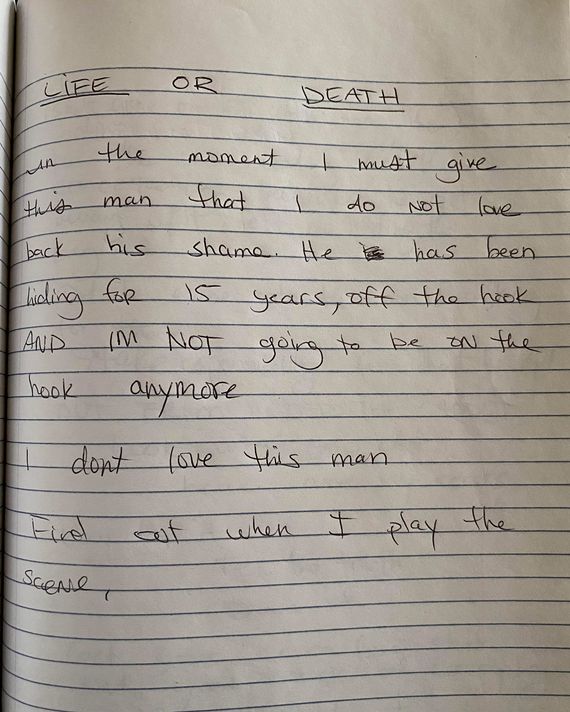 LIFE OR DEATH
in the moment I must give
this man that I do NOT love
back his shame. He has been
hiding for 15 years, off the hook
AND IM NOT going to be ON the
hook anymore
I dont love this man
Find out when I play the
scene,